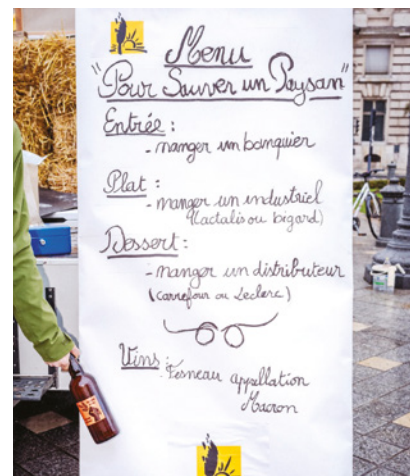 Menu
"Pour Sauver un Paysan"
Entrée :
- manger un banquier
Plat :
- manger un industriel
(Lactalis ou bigard)
Dessert :
- manger un distributeur
(Carrefour ou Leclerc)
Vins :
appellation
Macron